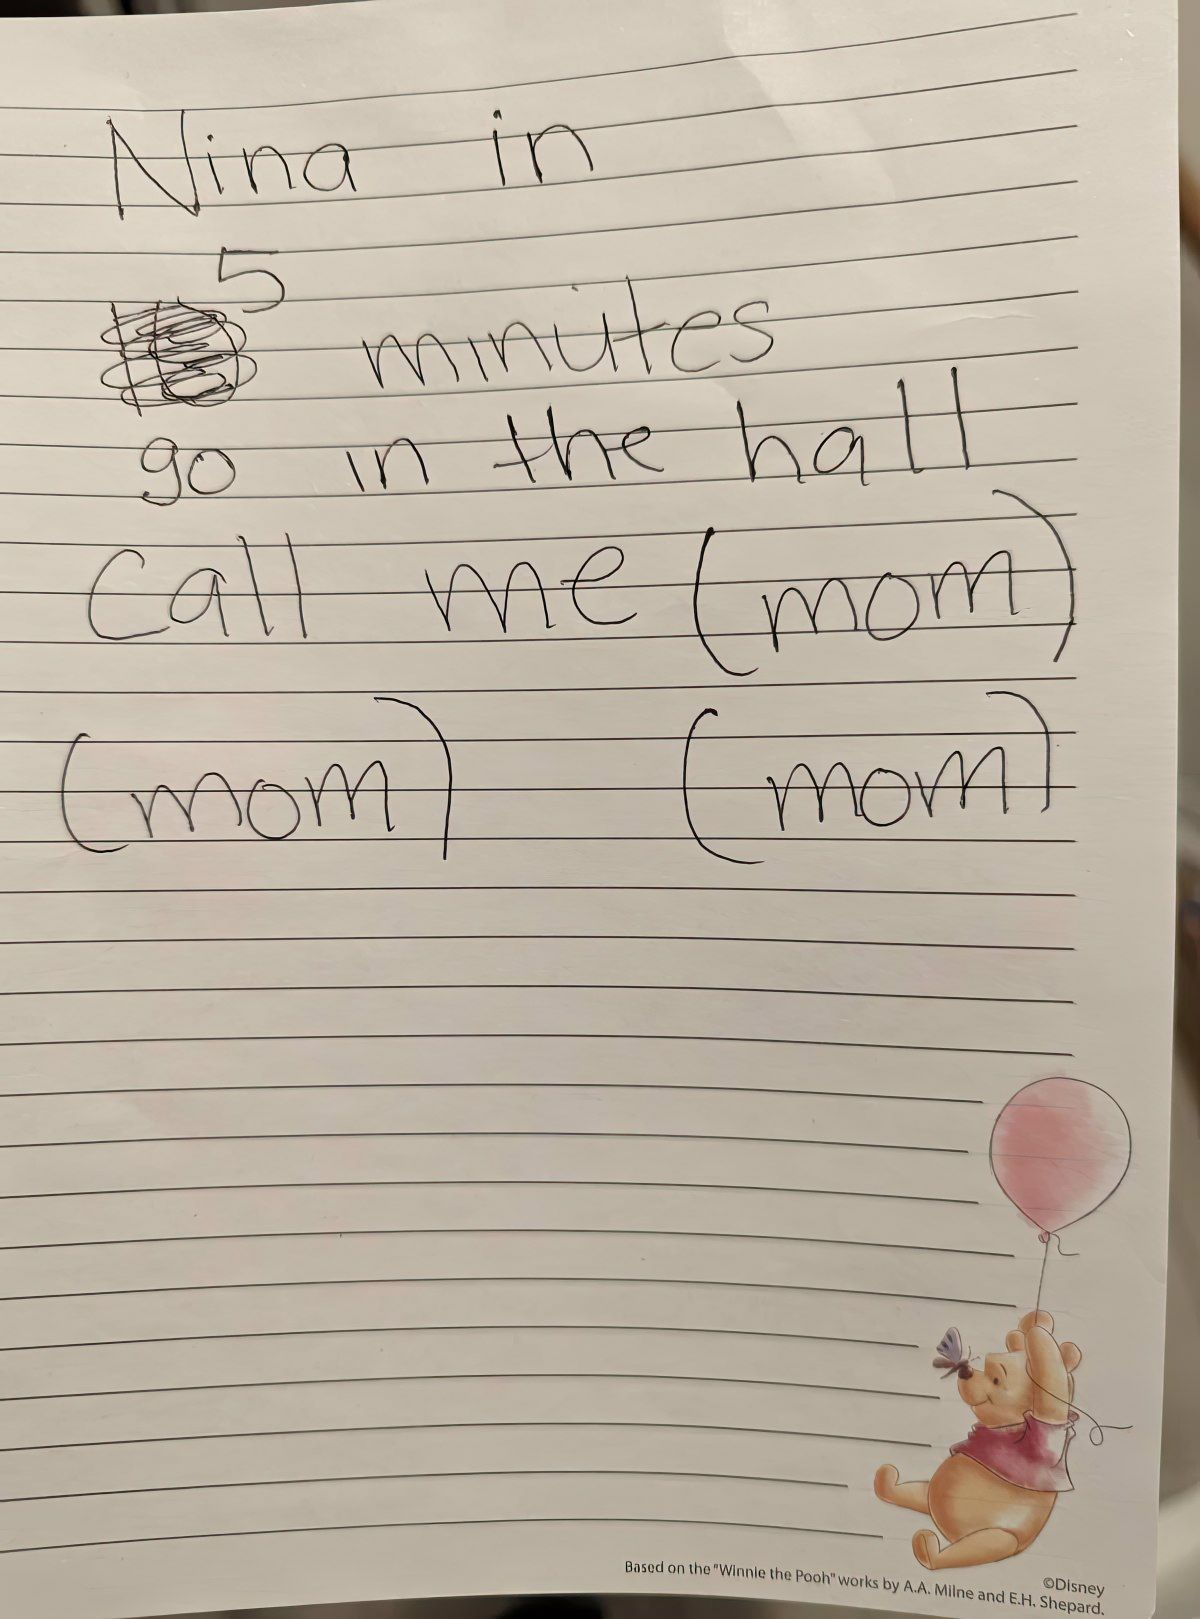 Nina in
5
minutes
go in the hall
call me (mom)
(mom) (mom)
©Disney
Based on the "Winnie the Pooh" works by A.A. Milne and E.H. Shepard.